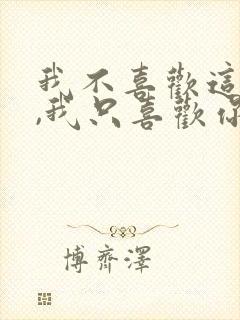 我不喜歡這
,我只喜歡你
博齊澤